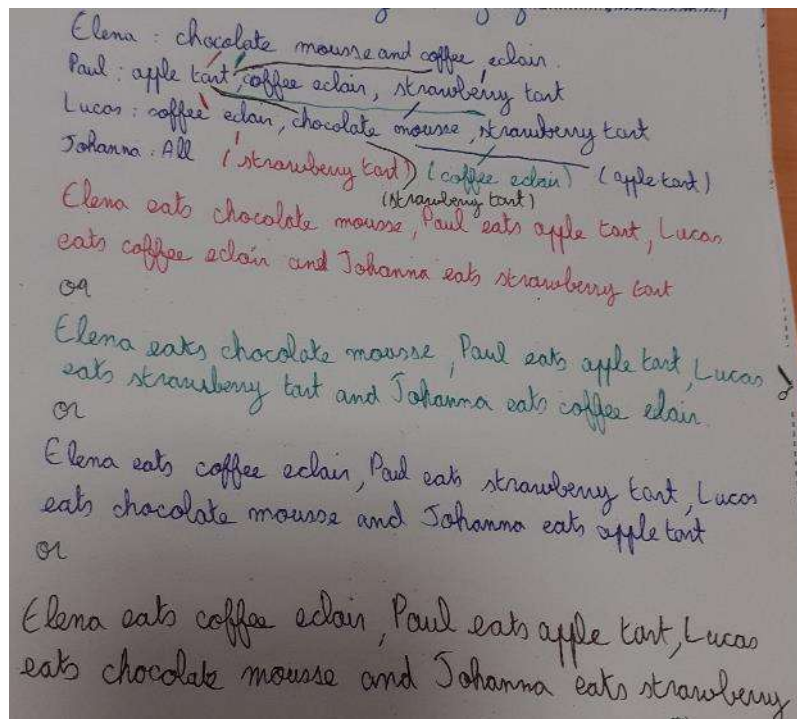 Elena : chocolate mousse and coffee eclair.
Paul : apple tart, coffee eclair, strawberry tart
Lucas : coffee eclair, chocolate mousse, strawberry tart
Johanna : All (strawberry tart) (coffee eclair) (apple tart)
(strawberry tart)
Elena eats chocolate mousse, Paul eats apple tart, Lucas
eats coffee eclair and Johanna eats strawberry tart
or
Elena eats chocolate mousse, Paul eats apple tart, Lucas
eats strawberry tart and Johanna eats coffee eclair.
or
Elena eats coffee eclair, Paul eats strawberry tart, Lucas
eats chocolate mousse and Johanna eats apple tart
or
Elena eats coffee eclair, Paul eats apple tart, Lucas
eats chocolate mousse and Johanna eats strawberry